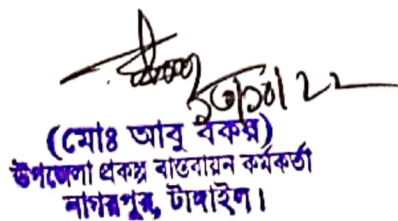 ১৩/১০/২২
(মোঃ আবু বকর)
উপজেলা প্রকল্প বাস্তবায়ন কর্মকর্তা
নাগরপুর, টাঙ্গাইল।